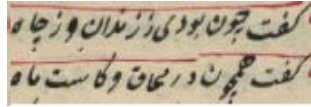 کفت چون بودی ز زندان و ز چاه
کفت همچون در محاق و کاست ماه